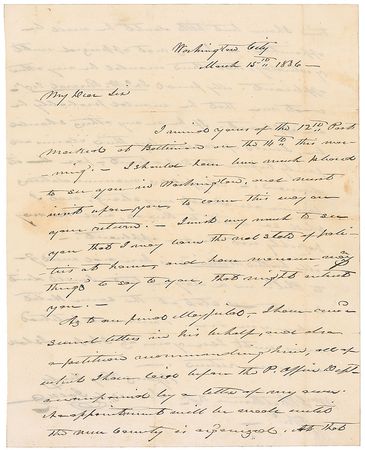 Washington City
March 15th 1836 —
My Dear Sir
I recd yours of the 12th Post
marked at Baltimore on the 14th this mor-
ning. — I should have been much pleased
to see you in Washington, and must
insist upon you to come this way on
your return. — I wish very much to see
you that I may learn the real state of poli-
tics at home, and have
things to say to you, that might interest
you. —
As to our friend — I have recd
several letters in his behalf, and also
a petition recommending him, all of
which I have laid before the P. Office Dept
accompanied by a letter of my own.
No appointment will be made until
the new County is organized. At that